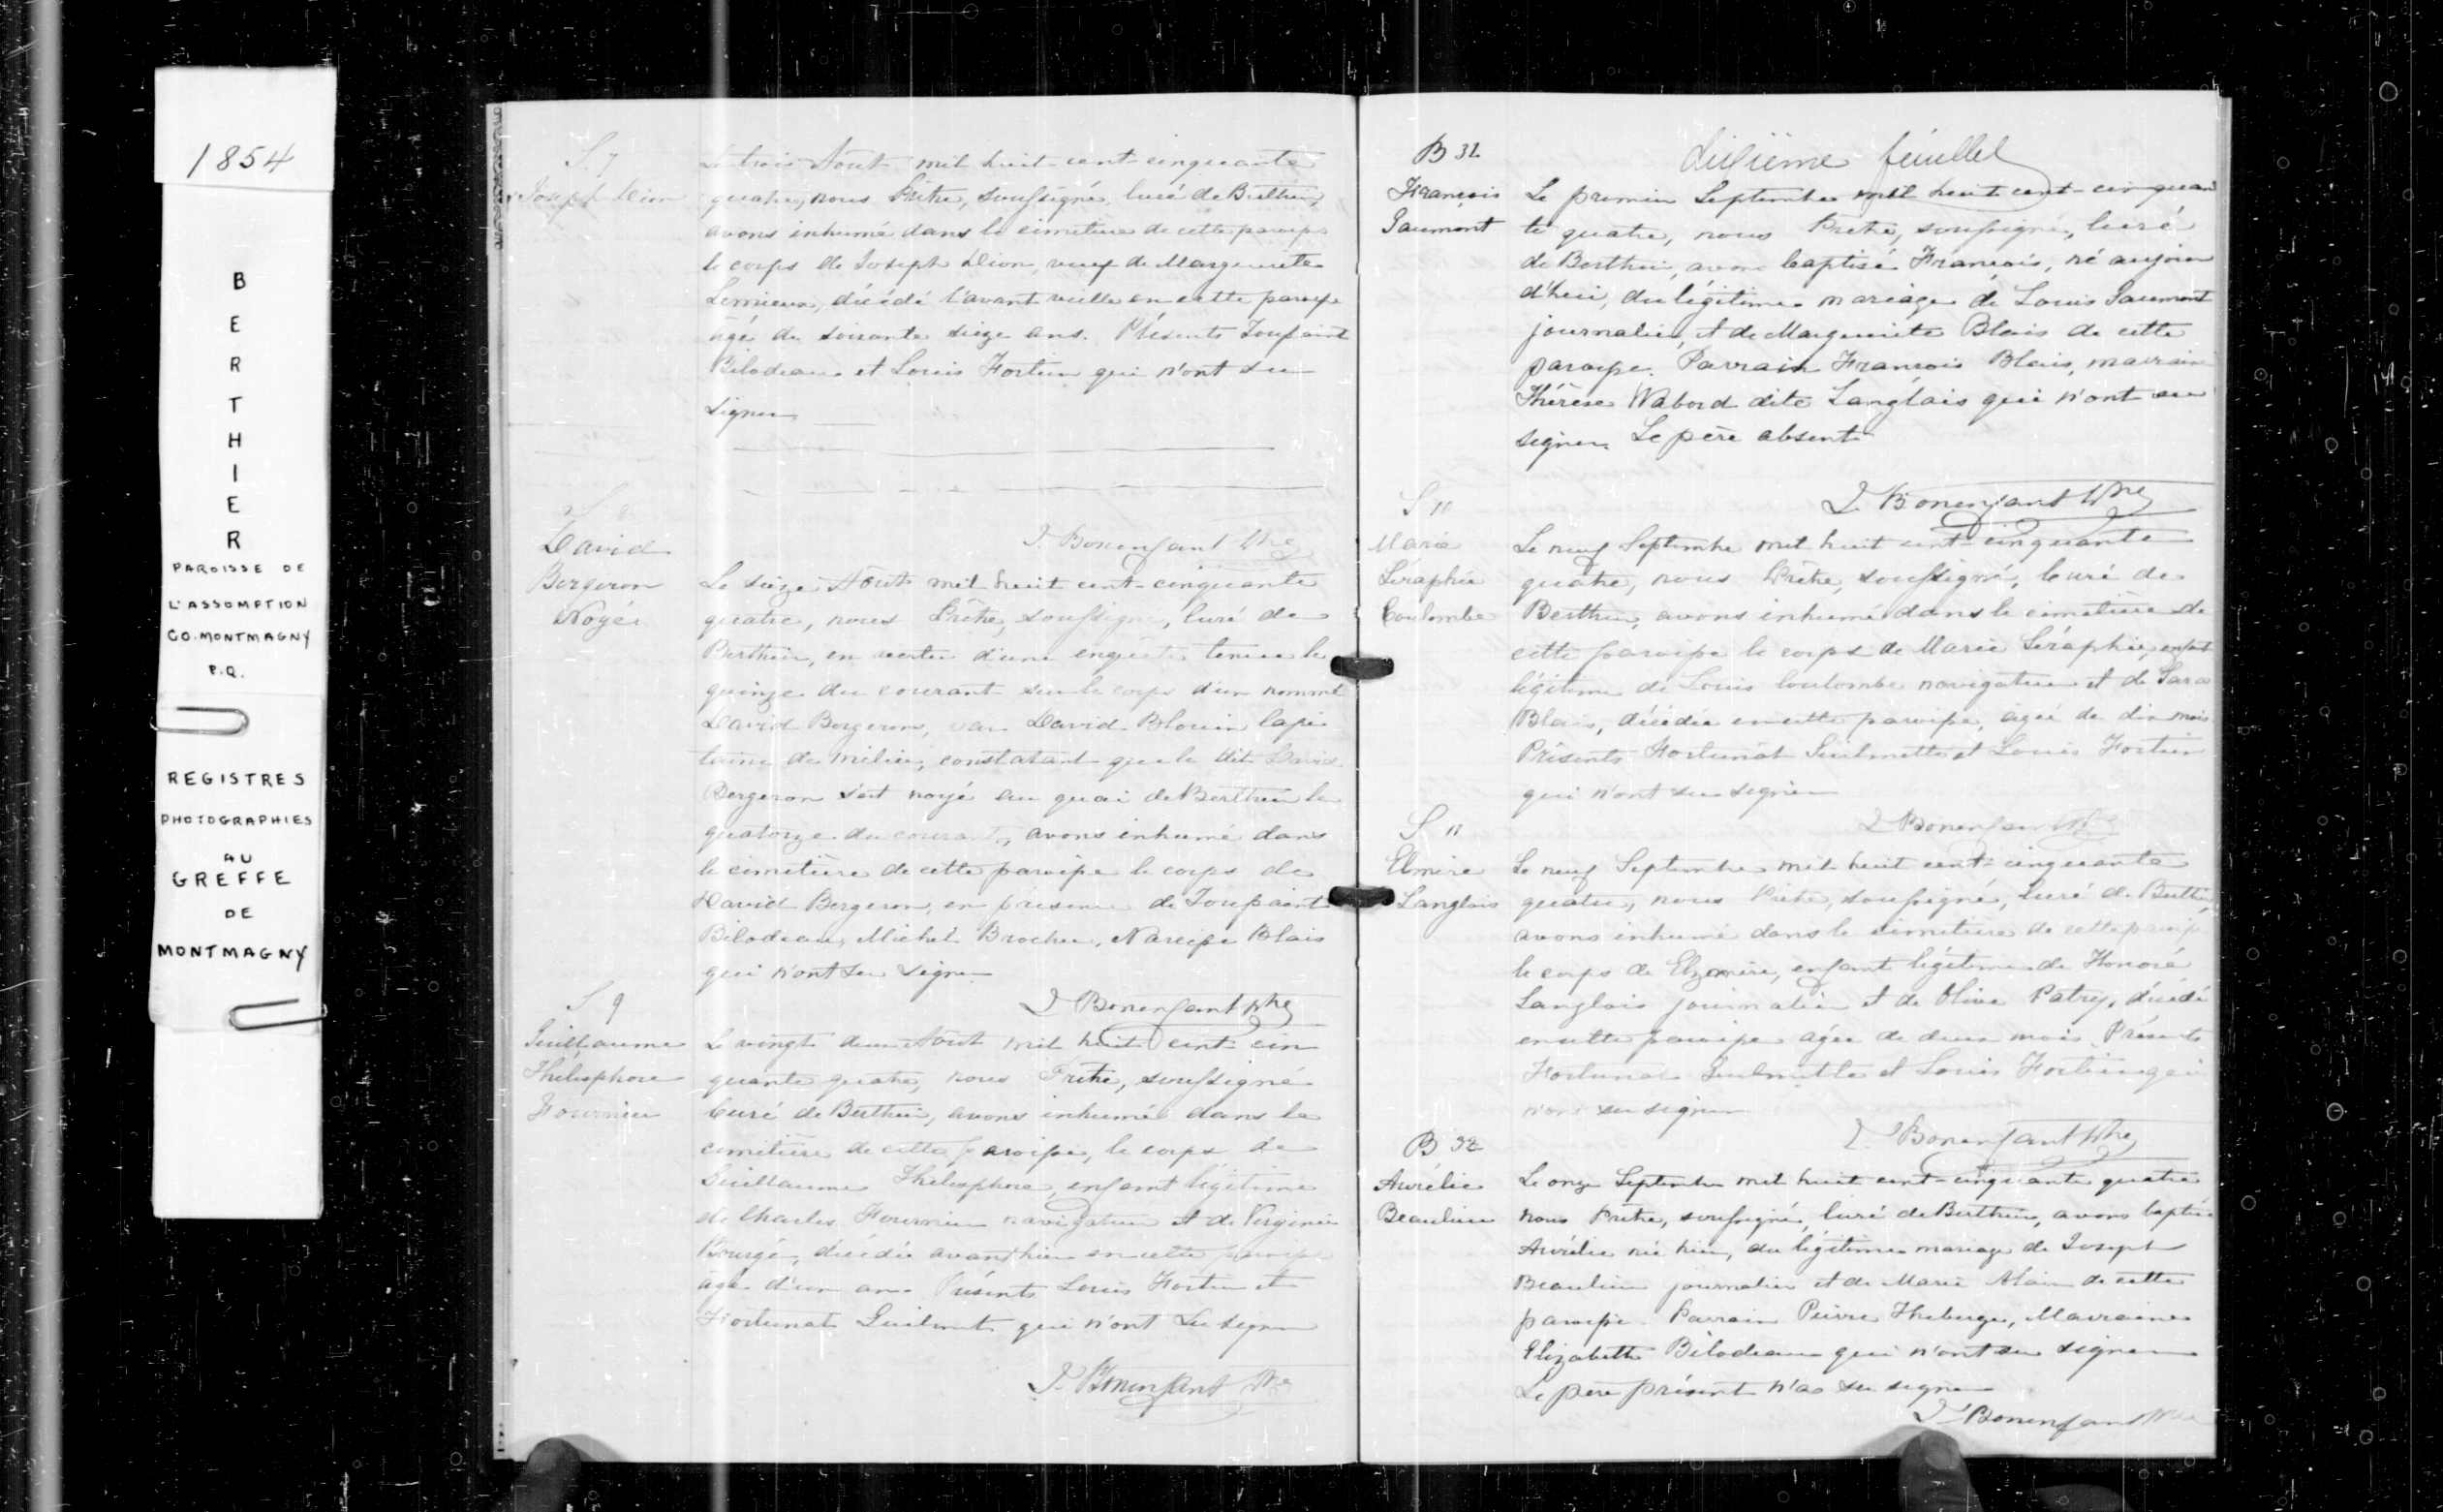 1854
B
E
R
T
H
I
E
R
PAROISSE DE
L'ASSOMPTION
CO. MONTMAGNY
P.Q.
REGISTRES
PHOTOGRAPHIES
AU
GREFFE
DE
MONTMAGNY
S. 7
Joseph Dion
Le trois Aout mil huit cent cinquante
quatre, nous Prêtre, soussigné, Curé de Berthier,
avons inhumé dans le cimetière de cette paroisse
le corps de Joseph Dion, veuf de Marguerite
Lemieux, décédé l'avant veille en cette paroisse
âgé de soixante seize ans. Présents Toussaint
Bilodeau et Louis Fortin qui n'ont su
signer
J. Bonenfant Ptre
S. 8
David
Bergeron
Noyé
Le seize Aout mil huit cent-cinquante
quatre, nous Prêtre, soussigné, Curé de
Berthier, en vertu d'une enquête tenue le
quinze du courant sur le corps d'un nommé
David Bergeron, par David Blouin Capi
taine de milice, constatant que le dit David
Bergeron s'est noyé au quai de Berthier le
quatorze du courant, avons inhumé dans
le cimetière de cette paroisse le corps de
David Bergeron, en présence de Toussaint
Bilodeau, Michel Brochu, Narcisse Blais
qui n'ont su signer
J. Bonenfant Ptre
S 9
Guillaume
Thélesphore
Fournier
Le vingt deux Aout mil huit cent cin
quante quatre, nous Prêtre, soussigné
Curé de Berthier, avons inhumé dans le
cimetière de cette paroisse, le corps de
Guillaume Thélesphore, enfant légitime
de Charles Fournier navigateur et de Virginie
Bourgé, décédé avant hier en cette paroisse
âgé d'un an. Présents Louis Fortin et
Fortunat Guilmet qui n'ont su signer
J. Bonenfant Ptre
Dixième feuillet
B 31
François
Gaumont
Le premier Septembre mil huit cent-cinquan
te quatre, nous Prêtre, soussigné, Curé
de Berthier, avons baptisé François, né aujour
d'hui, du légitime mariage de Louis Gaumont
journalier, et de Marguerite Blais de cette
paroisse. Parrain François Blais, marraine
Thérèse Nabord dite Langlais qui n'ont su
signer. Le père absent
J. Bonenfant Ptre
S 11
Marie
Séraphie
Coulombe
Le neuf Septembre mil huit cent-cinquante
quatre, nous Prêtre, soussigné, Curé de
Berthier, avons inhumé dans le cimetière de
cette paroisse le corps de Marie Séraphie, enfant
légitime de Louis Coulombe navigateur et de Sara
Blais, décédée en cette paroisse, âgée de dix mois
Présents Fortunat Guilmette et Louis Fortin
qui n'ont su signer
J Bonenfant Ptre
S 11
Elmire
Langlois
Le neuf Septembre mil huit cent-cinquante
quatre, nous Prêtre, soussigné, Curé de Berthier,
avons inhumé dans le cimetière de cette paroisse
le corps de Elzmire, enfant légitime de Honoré
Langlois journalier et de Olive Patry, décédé
en cette paroisse âgée de deux mois. Présents
Fortunat Guilmette et Louis Fortin qui
n'ont su signer
J. Bonenfant Ptre
B 32
Aurélie
Beaulieu
Le onze Septembre mil huit cent-cinquante quatre
nous Prêtre, soussigné, Curé de Berthier, avons baptisé
Aurélie née hier, du légitime mariage de Joseph
Beaulieu journalier et de Marie Alain de cette
paroisse. Parrain Pierre Theberge, Marraine
Elizabeth Bilodeau qui n'ont su signer
Le père présent n'a su signer
J. Bonenfant Ptre